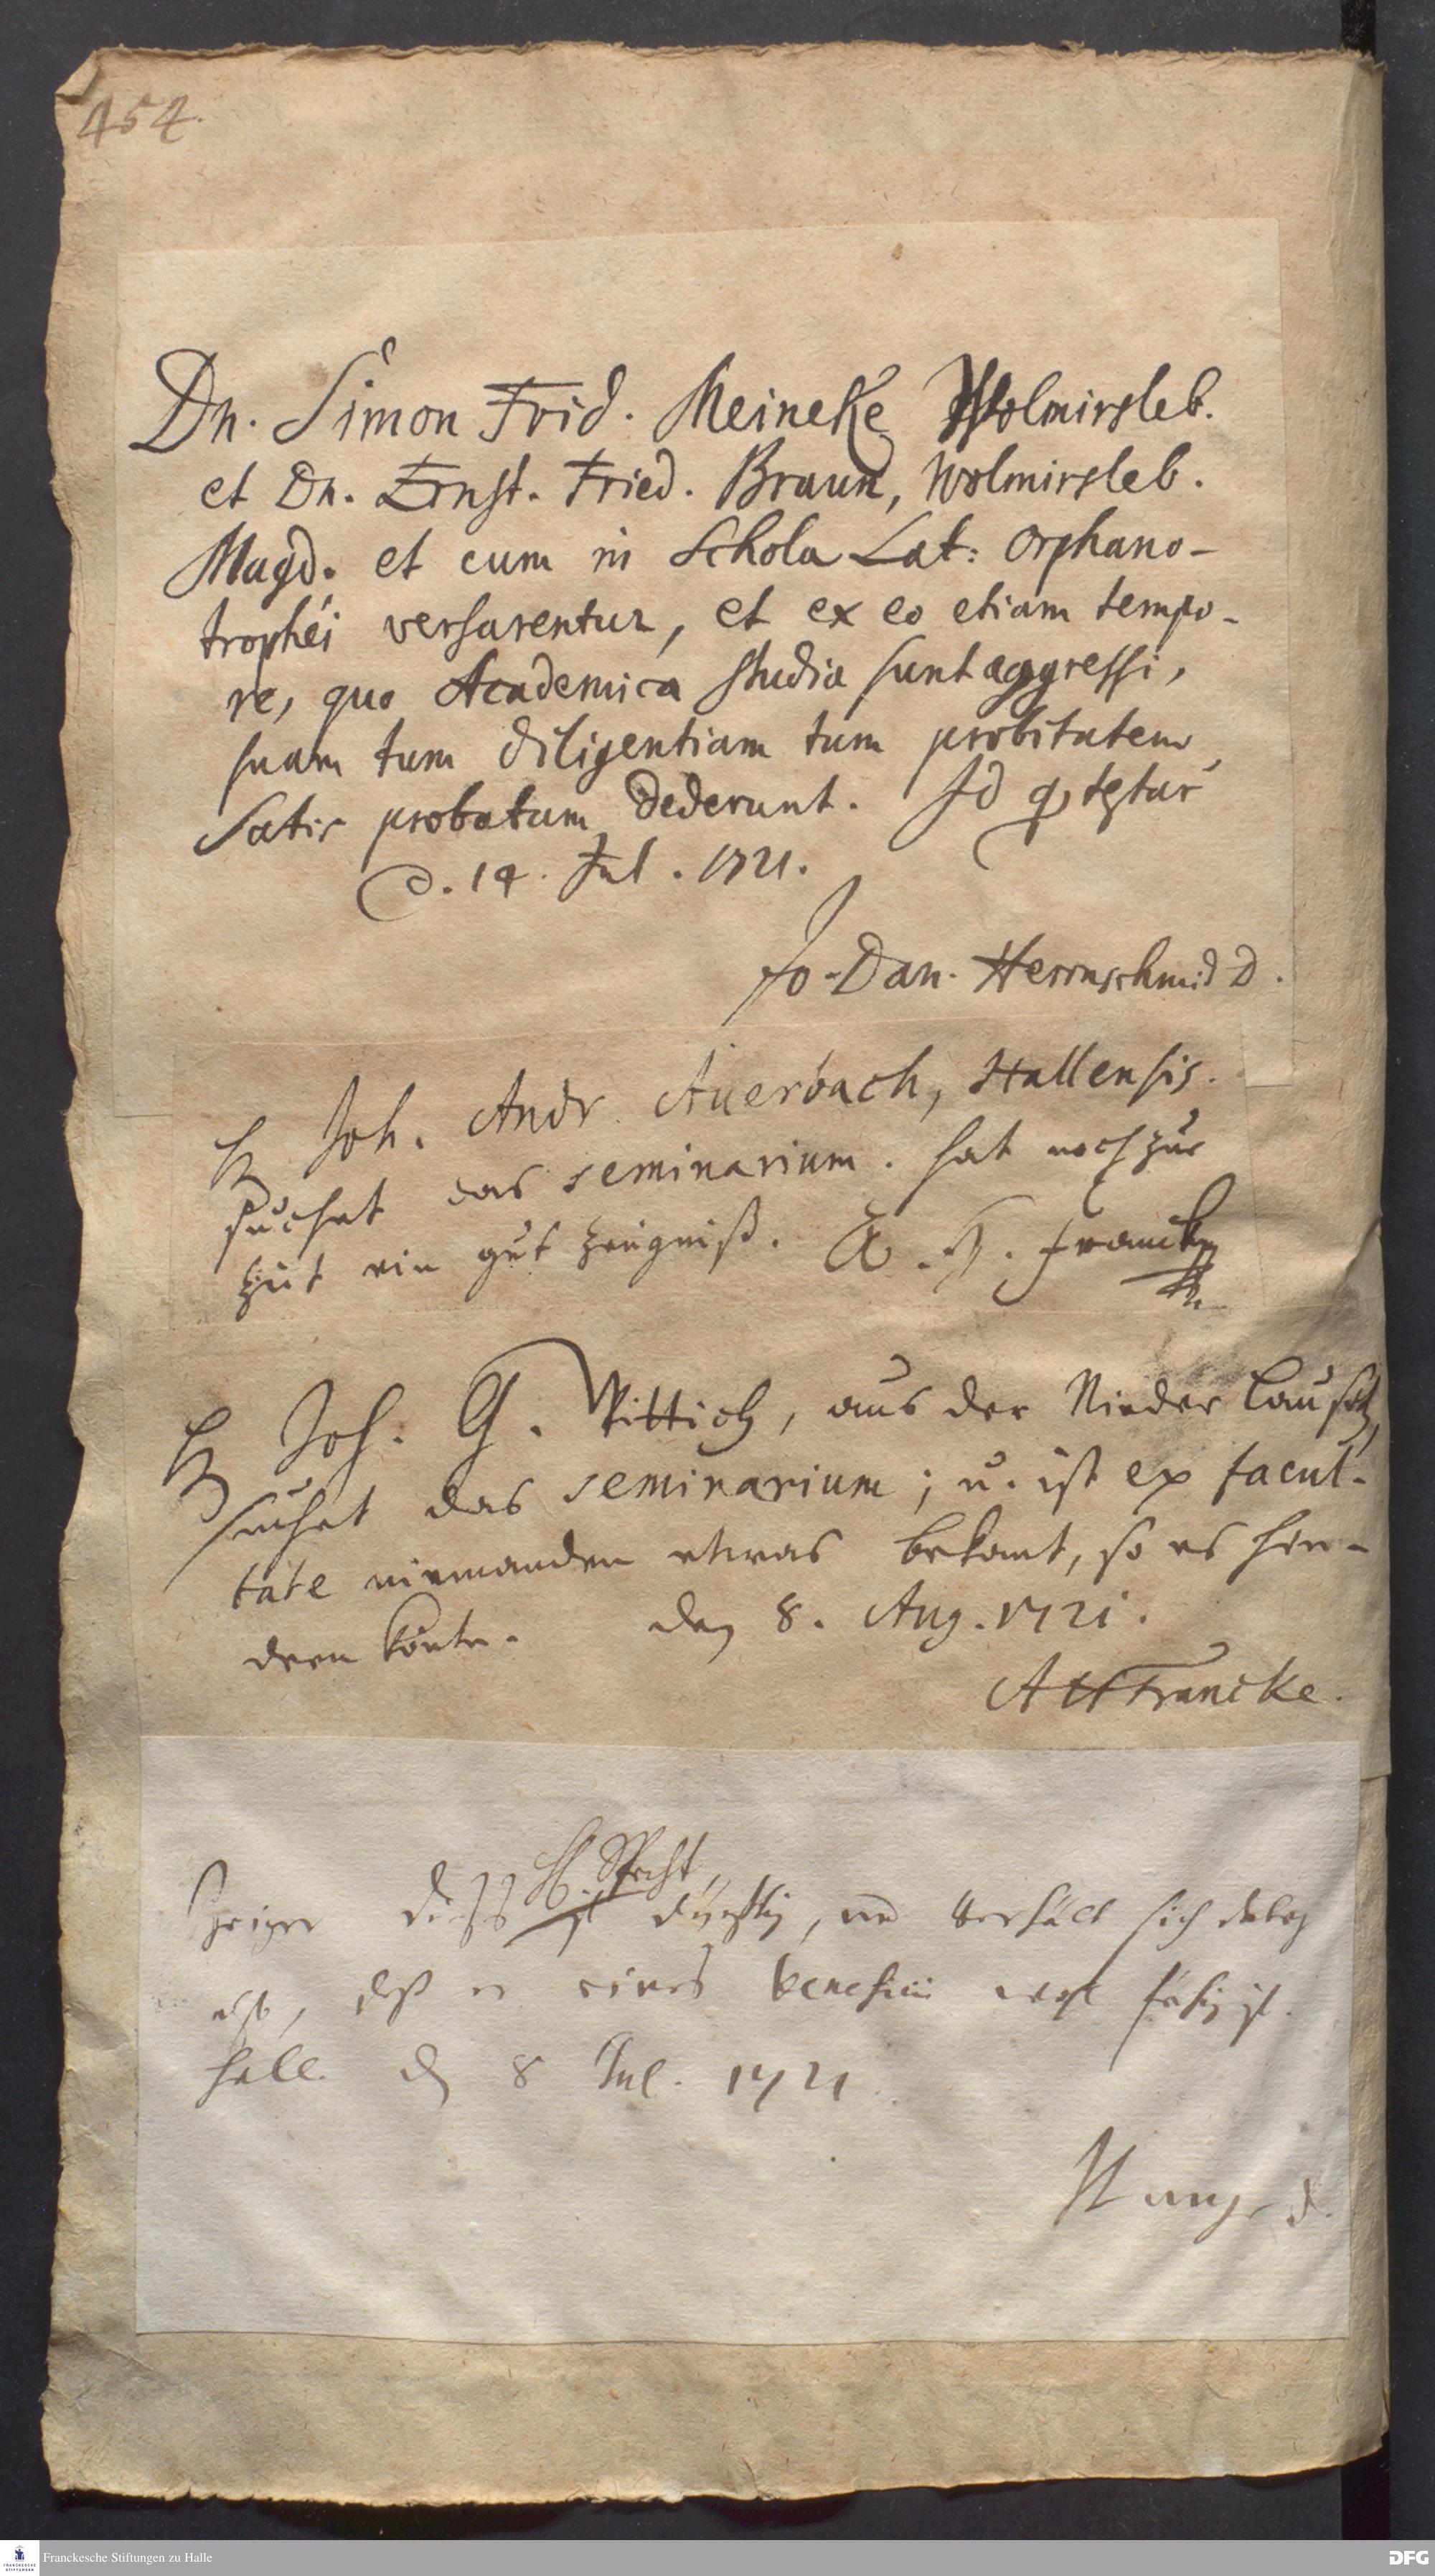 454.
Dn. Simon Frid. Meineke Wolmirsleb.
et Dn. Ernst. Fried. Braun, Wolmirsleb.
Magd. et cum in Schola Lat: Orphano-
trophéi versarentur, et ex eo etiam tempo-
re, quo Academica studia sunt aggressi,
suam tum diligentiam tum probitatem
satis probatam dederunt. Id q testar
d. 14. Jul. 1721.
Jo. Dan. Herrnschmid D.
H Joh. Andr. Auerbach, Hallensis.
suchet das seminarium. hat noch zur
Zeit ein gut Zeugniß. A. H. Francke
H Joh. G. Wittich, aus der Nieder Lausitz,
suchet das seminarium; u. ist ex facul-
tate niemanden etwas bekant, so es hin-
dern könte. den 8. Aug. 1721.
AHFrancke.
H. Specht,
Zeiger dieses ist dürftig, und verhält sich dabey
also, daß er eines beneficii wol fähig ist.
Hall. d 8 Jul. 1721.
D.
Franckesche Stiftungen zu Halle
DFG